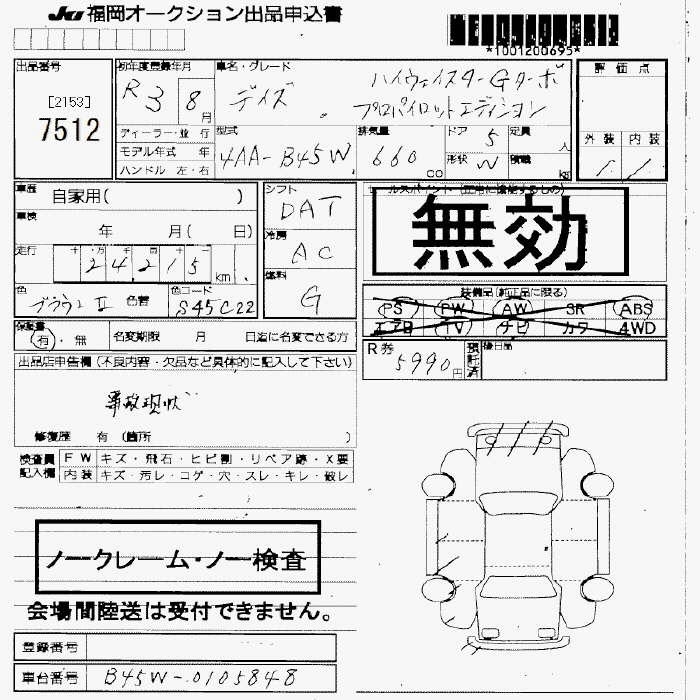 JU 福岡オークション出品申込書
*1001200695*
出品番号
[2153]
7512
初年度登録年月
R3 8月
車名・グレード
デイズ
ハイウェイスターGターボ
プロパイロットエディション
評価点
外装 内装
/ /
ディーラー・並行
モデル年式 年
ハンドル 左・右
型式
4AA-B45W
排気量
660 cc
ドア 5
形状 W
定員 人
積載 kg
車歴 自家用( )
車検 年 月( 日)
走行 十 万 千 百 十 一
24215 km
色 ブラウンⅡ 色替
色コード S45C22
シフト DAT
冷房 AC
燃料 G
セールスポイント(正常に機能するもの)
無効
装備品(純正品に限る)
PS PW AW SR ABS
エアB TV ナビ カワ 4WD
保証書 有・無
名変期限 月 日迄に名変できる方
R券 5990円
預託済
後日品
出品店申告欄(不良内容・欠品など具体的に記入して下さい)
事故現状
修復歴 有(箇所 )
検査員記入欄
FW キズ・飛石・ヒビ割・リペア跡・X要
内装 キズ・汚レ・コゲ・穴・スレ・キレ・破レ
ノークレーム・ノー検査
会場間陸送は受付できません。
登録番号
車台番号 B45W-0105848